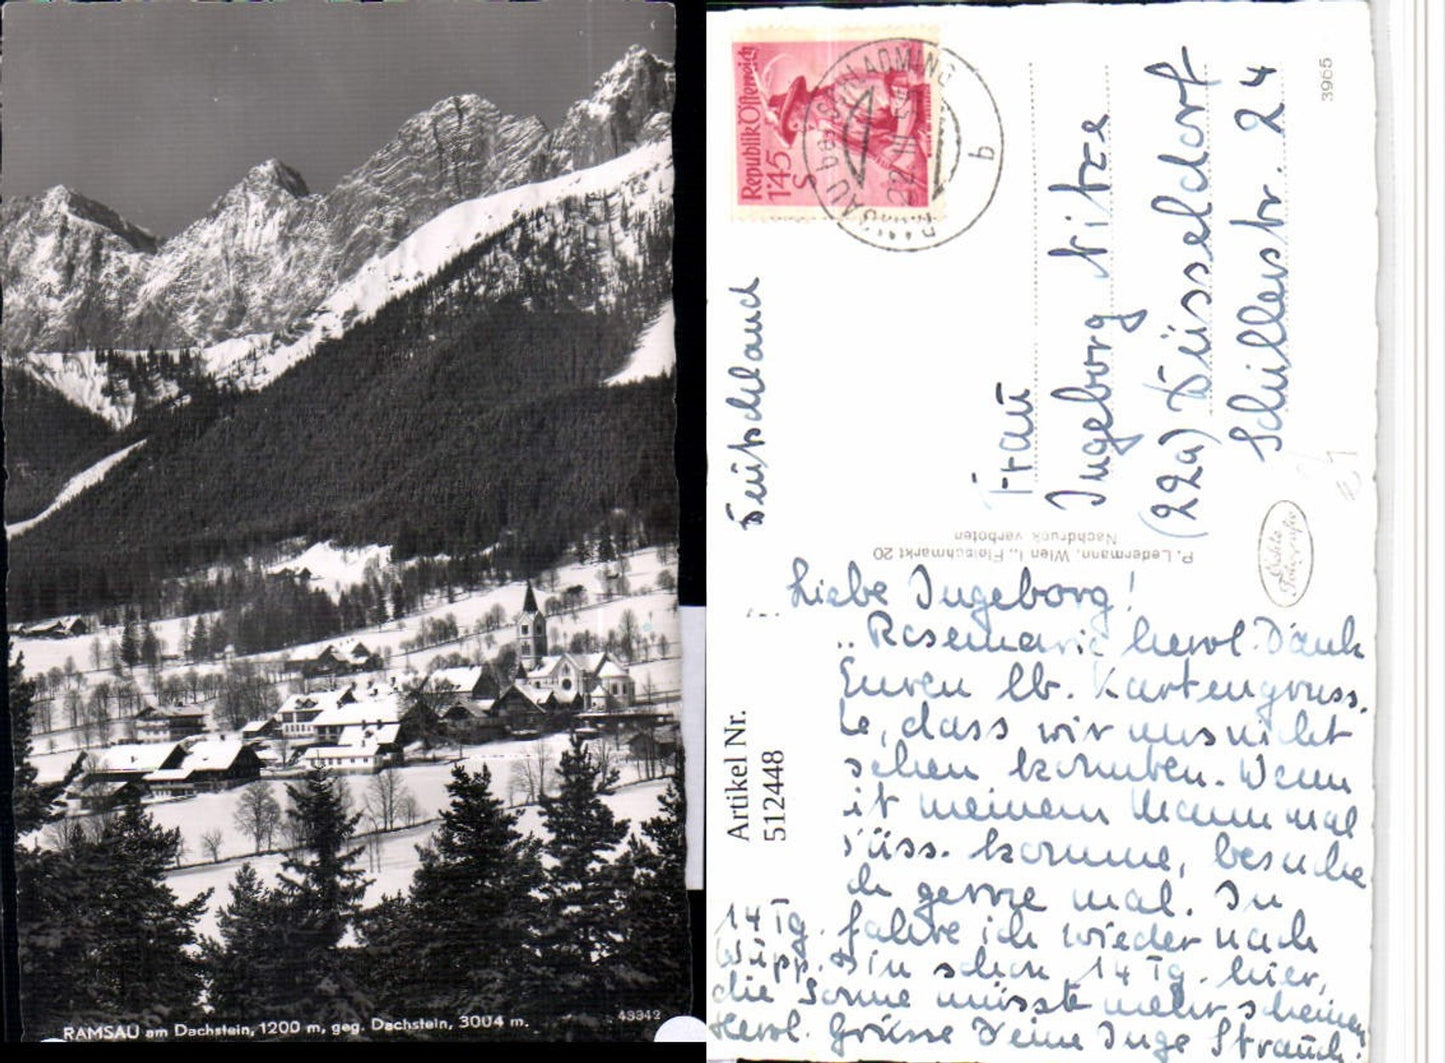 RAMSAU am Dachstein, 1200 m, geg. Dachstein, 3004 m.
43342
Republik Österreich
1'45
S
RAMSAU bei SCHLADMING
b
3965
Deutschland
Frau
Ingeborg Nitze
(22a) Düsseldorf
Schillerstr. 24
P. Ledermann, Wien I., Fleischmarkt 20
Nachdruck verboten
Echte
Artikel Nr.
512448
Liebe Ingeborg!
Rosemarie herzl. Dank
Euren lb. Kartengruss.
, dass wir uns nicht
sehen konnten. Wenn
ich meinem Mann mal
Düss. komme, besuche
ich gerne mal. In
14 Tg. fahre ich wieder nach
Wupp. Bin schon 14 Tg. hier,
die Sonne müsste mehr scheinen
Herzl. Grüsse Deine Inge Strauch